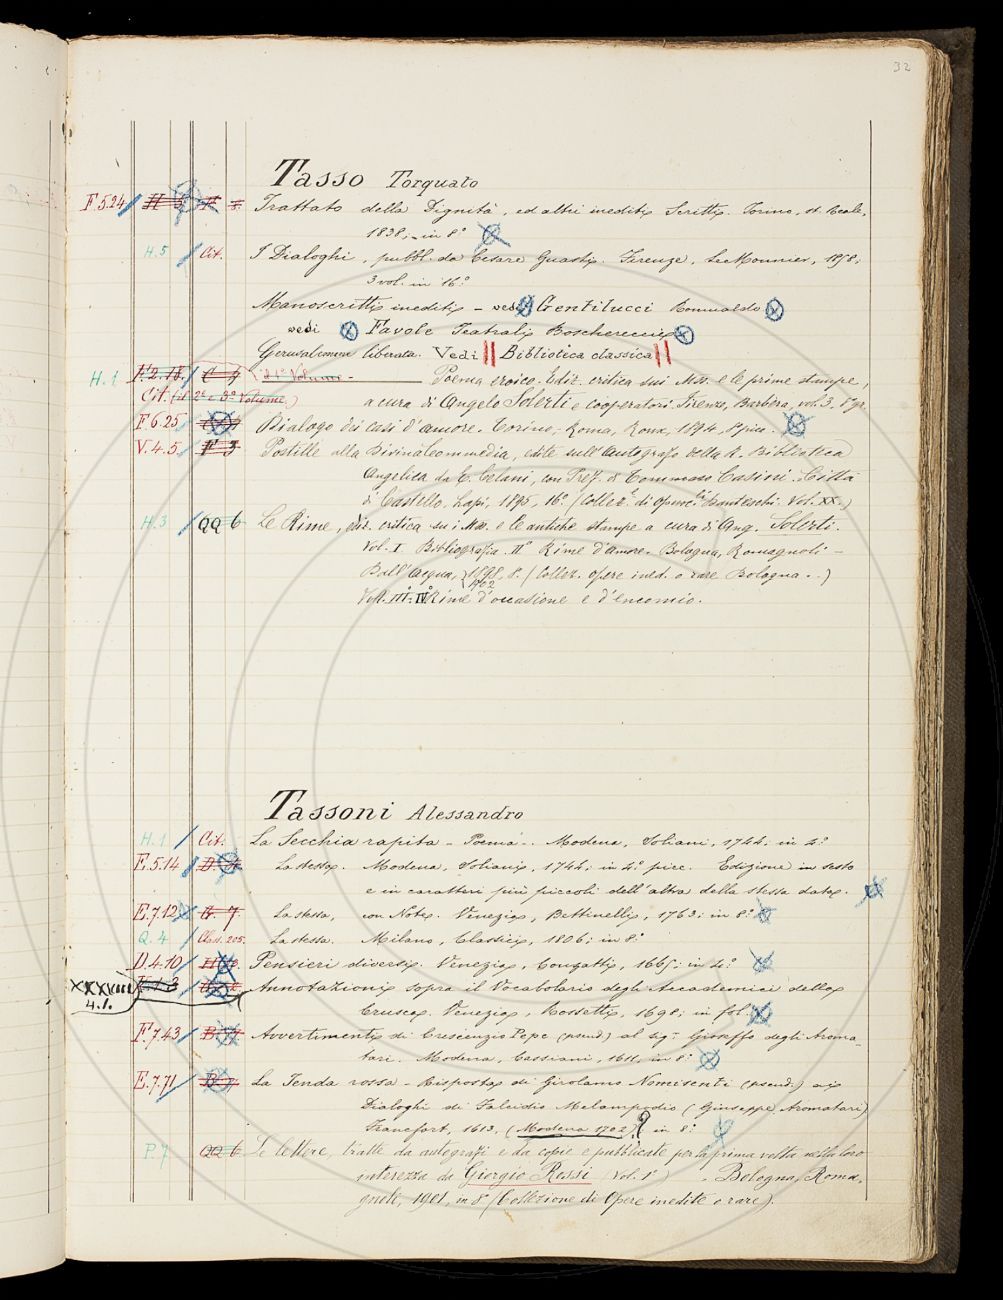 32
Tasso Torquato
F.5.24 / Trattato della Dignità, ed altri inediti Scritti. Torino, st. Reale,
1838; in 8°
H.5 / Cit. I Dialoghi, pubbl. da Cesare Guasti. Firenze, Le Monnier, 1858;
3 vol. in 16°
Manoscritti inediti - vedi Gentilucci Romualdo
vedi Favole Teatrali Boscherecce
Gerusalemme liberata. Vedi || Biblioteca classica ||
H.1 F.2.18. / C 4 (il 1° Volume - Poema eroico. Ediz. critica sui Mss. e le prime stampe,
Cit. (il 2° e 3° Volume) a cura di Angelo Solerti e cooperatori. Firenze, Barbèra, vol. 3, 8° gr.
F.6.25 Dialogo dei casi d'amore. Torino, Roma, Roux, 1894, 8° picc.
V.4.5. / F 3 Postille alla Divina Commedia, edite sull'autografo della R. Biblioteca
Angelica da E. Celani, con Pref. di Tommaso Casini. Città
di Castello, Lapi, 1895, 16° (Collez.e di Opuscoli Danteschi. Vol. XX.)
H.3 / QQ 6 Le Rime, ediz. critica su i Mss. e le antiche stampe a cura di Ang. Solerti.
Vol. I Bibliografia. II° Rime d'amore. Bologna, Romagnoli -
Dall'Acqua, 1898, 8°. (Collez. opere ined. o rare Bologna..)
1902
Voll. III°-IV° Rime d'occasione e d'encomio.
Tassoni Alessandro
H.1 / Cit. La Secchia rapita - Poema -. Modena, Soliani, 1744; in 4°
E.5.14 / La stessa. Modena, Soliani, 1744; in 4° picc. Edizione in sesto
e in caratteri più piccoli dell'altra della stessa data.
E.7.12 / G 7. La stessa, con Note. Venezia, Bettinelli, 1763; in 8°
Q.4 / Class. 205. La stessa. Milano, Classici, 1806; in 8°
D.4.10 / Pensieri diversi. Venezia, Conzatti, 1665; in 4°
XXXVIII Annotazioni sopra il Vocabolario degli Accademici della
4.1. Crusca. Venezia, Rossetti, 1698; in fol.
F.7.43 / Avvertimenti di Crescenzio Pepe (pseud) al sig.r Gioseffo degli Aroma-
tari. Modena, Cassiani, 1611, in 8°
E.7.71 / B 7. La Tenda rossa - Risposta di Girolamo Nomisenti (pseud.) ai
Dialoghi di Falcidio Melampodio (Giuseppe Aromatari)
Francfort, 1613, (Modena 1702)? in 8°
P.7 QQ 6 Le lettere, tratte da autografi e da copie e pubblicate per la prima volta nella loro
interezza da Giorgio Rossi (Vol. 1°) . Bologna, Roma-
gnoli, 1901, in 8° (Collezione di Opere inedite o rare).